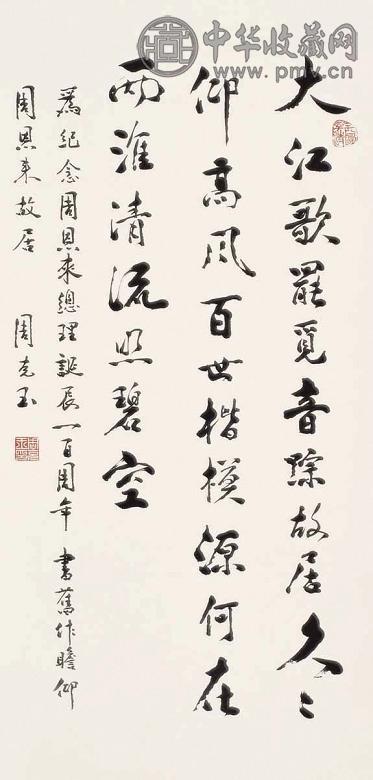 中华收藏网
www.pmv.cn
大江歌罷覓音踪故居久〻
仰高風百世楷模源何在
两淮清流照碧空
爲紀念周恩來總理誕辰一百周年 書舊作瞻仰
周恩来故居 周克玉